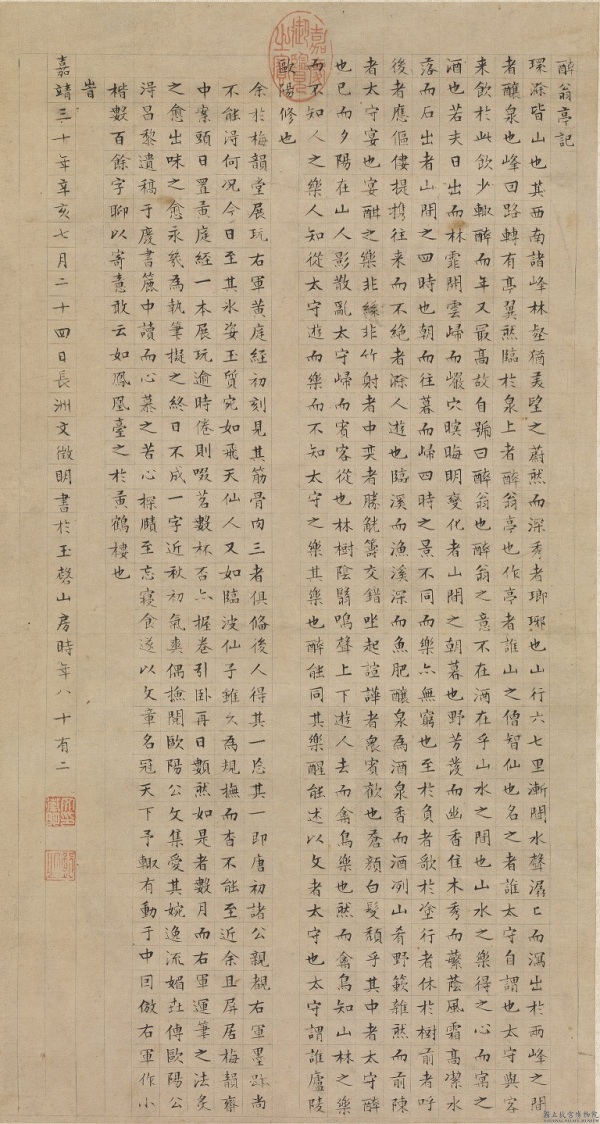 醉翁亭記
環滁皆山也其西南諸峰林壑猶美望之蔚然而深秀者瑯琊也山行六七里漸聞水聲潺〻而瀉出於兩峰之間
者釀泉也峰回路轉有亭翼然臨於泉上者醉翁亭也作亭者誰山之僧智仙也名之者誰太守自謂也太守與客
來飲於此飲少輒醉而年又最高故自號曰醉翁也醉翁之意不在酒在乎山水之間也山水之樂得之心而寓之
酒也若夫日出而林霏開雲歸而巖穴暝晦明變化者山間之朝暮也野芳發而幽香佳木秀而蘩蔭風霜高潔水
落而石出者山間之四時也朝而往暮而歸四時之景不同而樂亦無窮也至於負者歌於塗行者休於樹前者呼
後者應傴僂提携往來而不絕者滁人遊也臨溪而漁溪深而魚肥釀泉為酒泉香而酒冽山肴野蔌雜然而前陳
者太守宴也宴酣之樂非絲非竹射者中奕者勝觥籌交錯坐起諠譁者衆賓歡也蒼顏白髮頹乎其中者太守醉
也已而夕陽在山人影散亂太守歸而賓客從也林樹陰翳鳴聲上下遊人去而禽鳥樂也然而禽鳥知山林之樂
而不知人之樂人知從太守遊而樂而不知太守之樂其樂也醉能同其樂醒能述以文者太守也太守謂誰廬陵
歐陽修也
余於梅韻堂展玩右軍黃庭經初刻見其筋骨肉三者俱備後人得其一忘其一即唐初諸公親覩右軍墨跡尚
不能得何況今日至其氷姿玉質宛如飛天仙人又如臨波仙子雖久為規橅而杳不能至近余且屏居梅韻齋
中案頭日置黃庭經一本展玩逾時倦則啜茗數杯否亦握卷引臥再日數然如是者數月而右軍運筆之法炙
之愈出味之愈永幾為執筆擬之終日不成一字近秋初氣爽偶橅閱歐陽公文集愛其婉逸流媚壵傳歐陽公
得昌黎遺稿于慶書簏中讀而心慕之苦心探賾至忘寢食遂以文章名冠天下予輒有動于中因倣右軍作小
楷數百餘字聊以寄意敢云如鳳凰臺之於黃鶴樓也
旹
嘉靖三十年辛亥七月二十四日長洲文徵明書於玉磬山房時年八十有二
嘉慶御覽之寶
國立故宮博物院